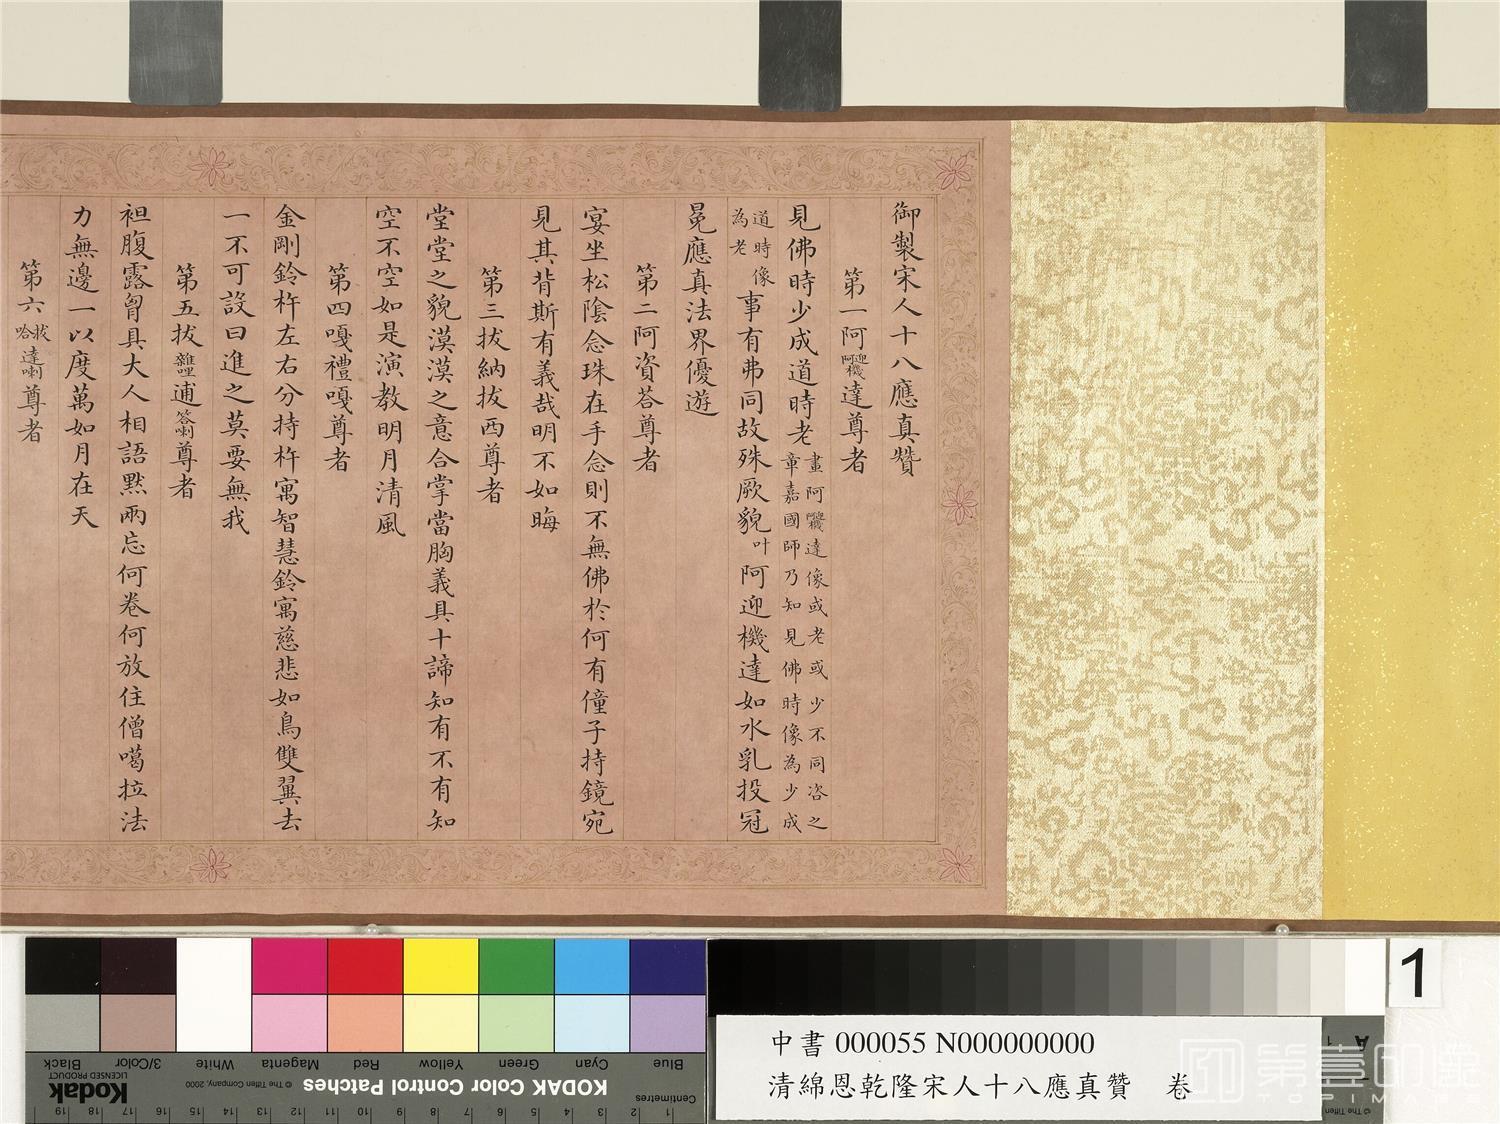 御製宋人十八應真贊
第一阿迎阿機達尊者
見佛時少成道時老畫阿迎阿機達像或老或少不同咨之章嘉國師乃知見佛時像為少成
道時像為老事有弗同故殊厥貌叶阿迎機達如水乳投冠
冕應真法界優遊
第二阿資荅尊者
宴坐松陰念珠在手念則不無佛於何有僮子持鏡宛
見其背斯有義哉明不如晦
第三拔納拔西尊者
堂堂之貌漠漠之意合掌當胸義具十諦知有不有知
空不空如是演教明月清風
第四嘎禮嘎尊者
金剛鈴杵左右分持杵寓智慧鈴寓慈悲如鳥雙翼去
一不可設曰進之莫要無我
第五拔雜哩逋答喇尊者
袒腹露胷具大人相語黙兩忘何卷何放住僧噶拉法
力無邊一以度萬如月在天
第六拔哈達喇尊者
1
Blue Cyan Green Yellow Red Magenta White 3/Color Black
KODAK Color Control Patches
© The Tiffen Company, 2000
Kodak
LICENSED PRODUCT
Centimetres
1 2 3 4 5 6 7 8 9 10 11 12 13 14 15 16 17 18 19
A 1
© The Tiffen
中書 000055 N000000000
清綿恩乾隆宋人十八應真贊 卷
第壹印像
TOPIMAGE